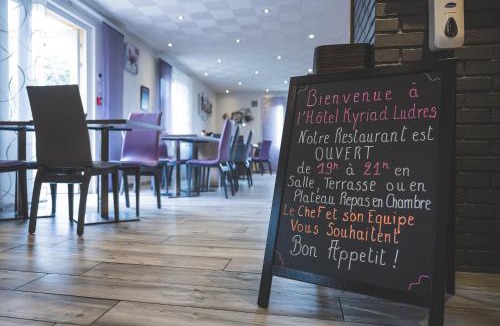 Bienvenue à
l'Hôtel Kyriad Ludres
Notre Restaurant est
OUVERT
de 19h à 21h en
Salle, Terrasse ou en
Plateau Repas en Chambre
Le Chef et son Equipe
Vous Souhaitent
Bon Appetit !